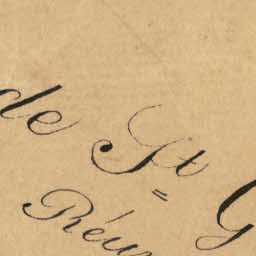 de St G
Réu